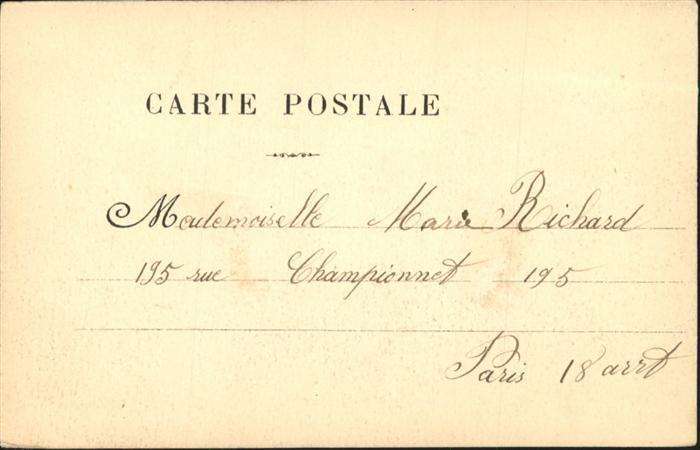 CARTE POSTALE
Mademoiselle Marie Richard
195 rue Championnet 195
Paris 18 arrt